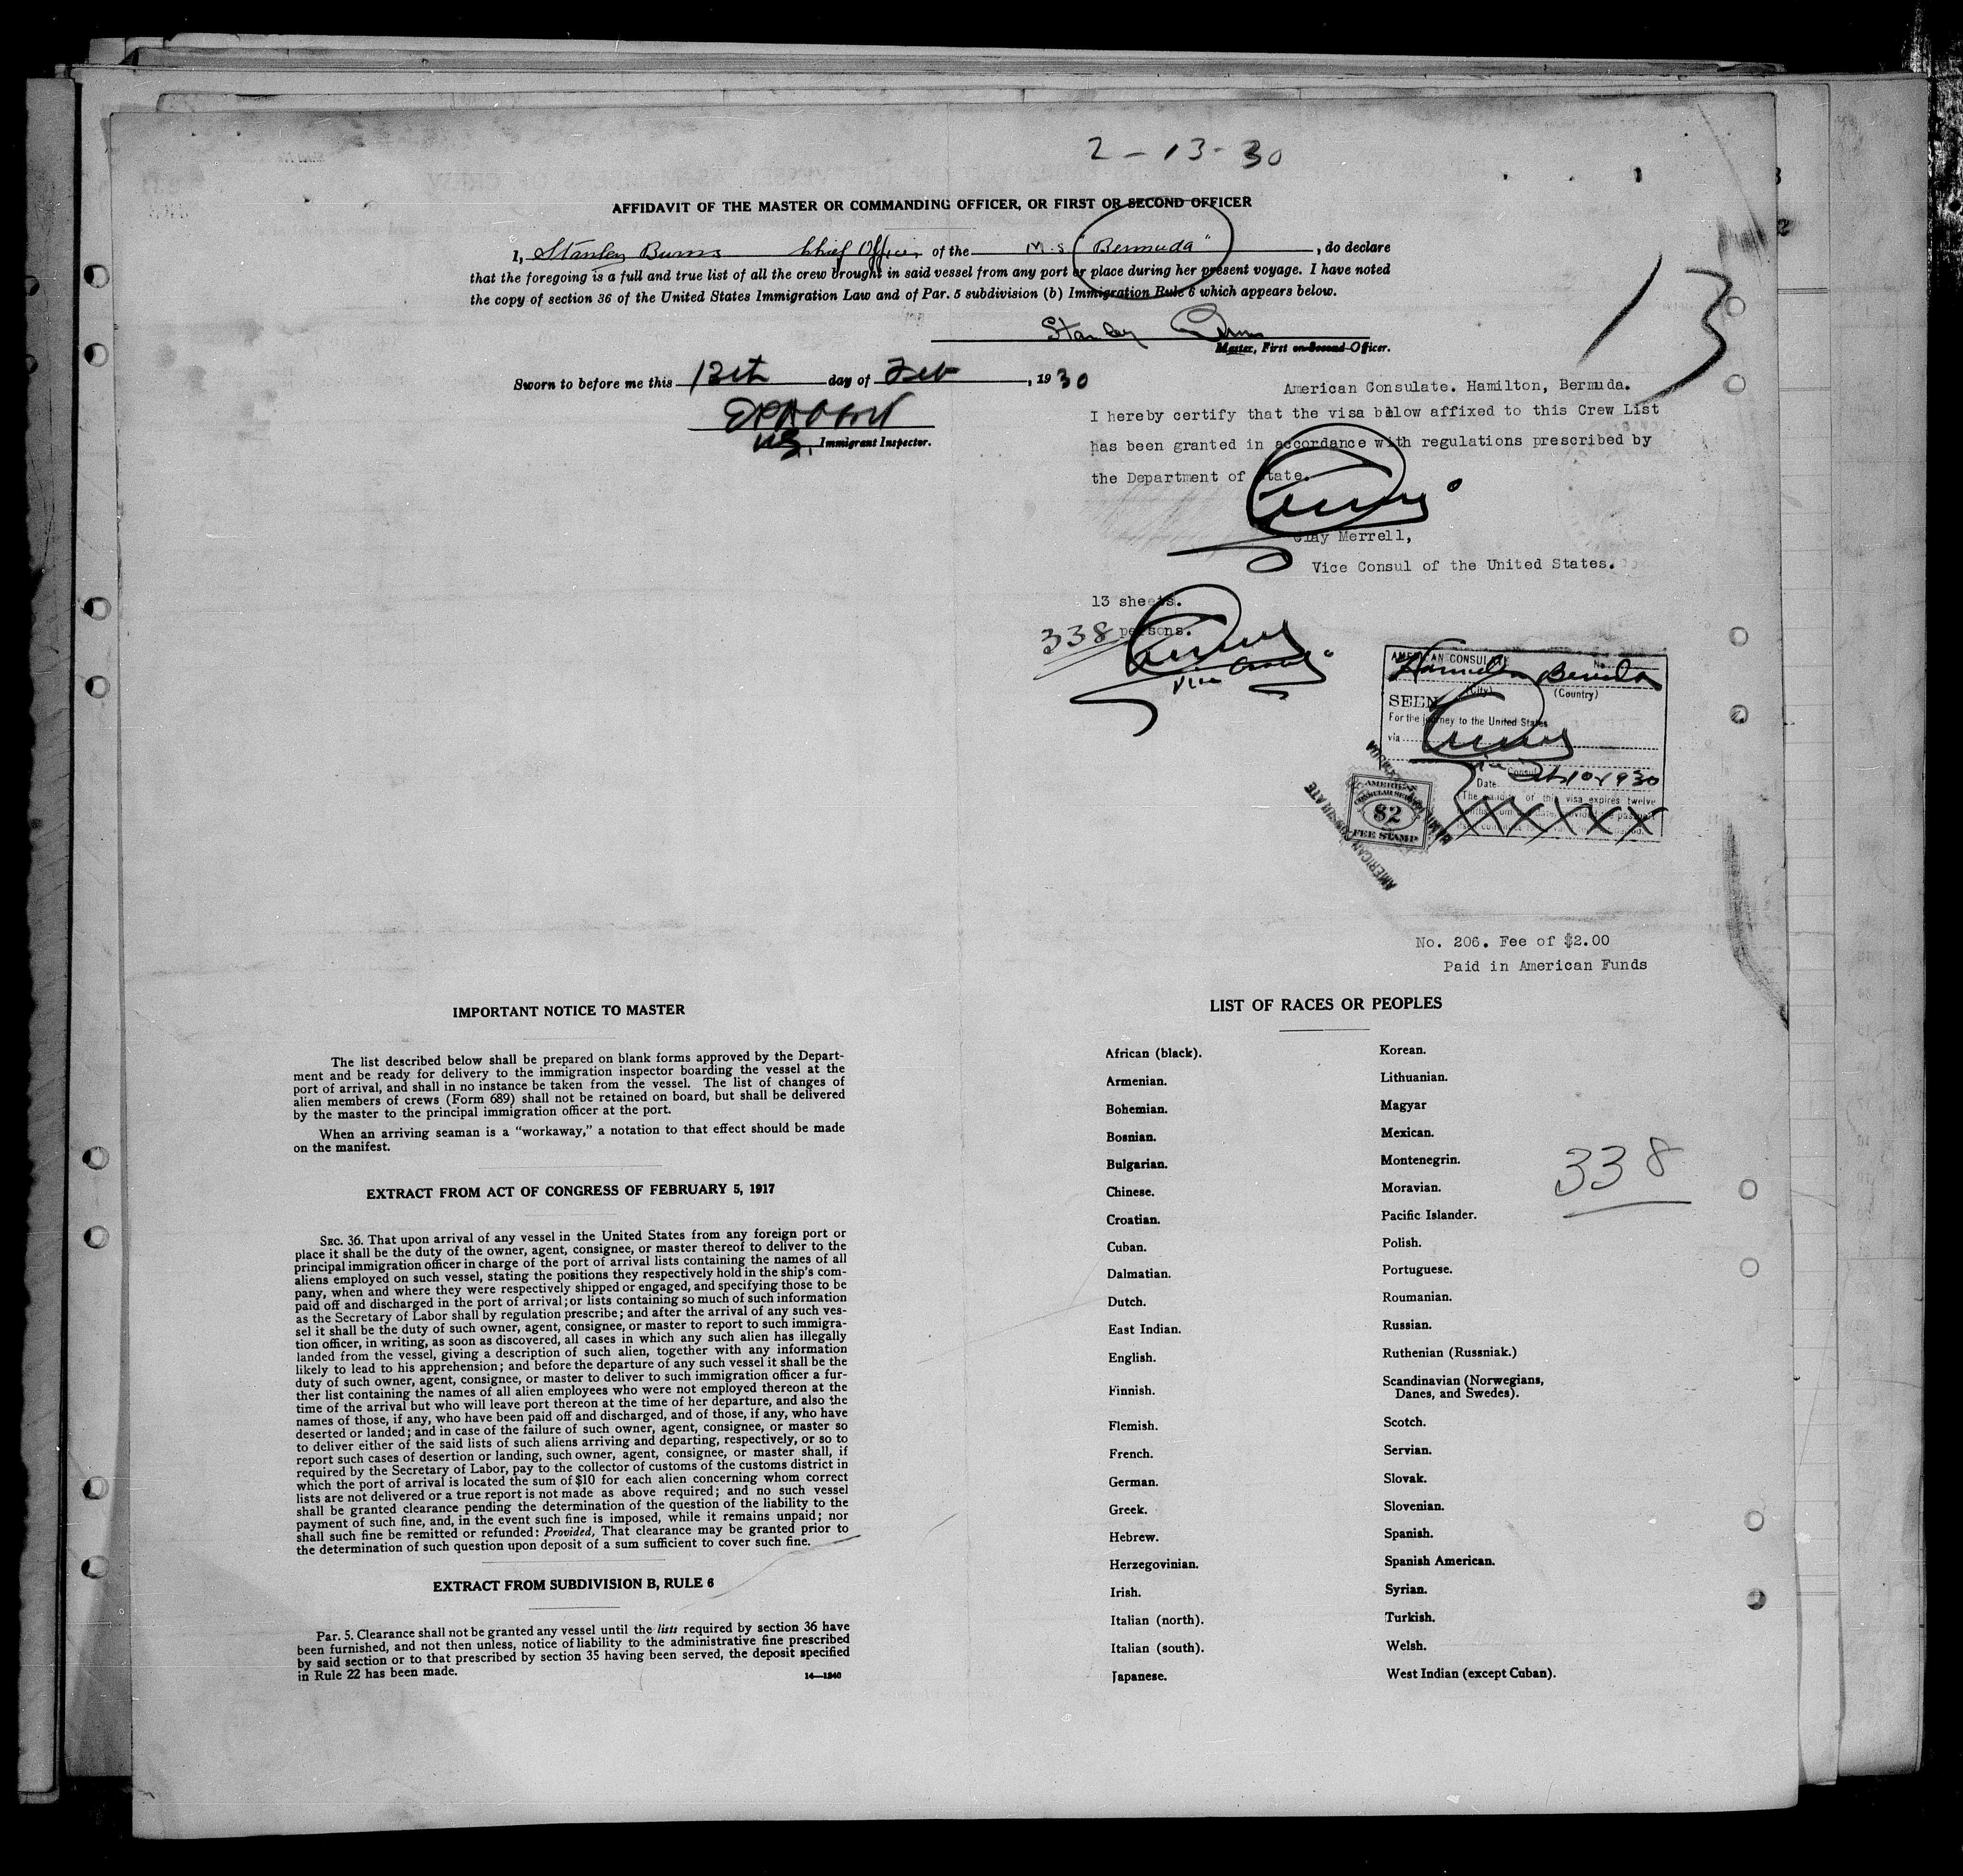 2-13-30
AFFIDAVIT OF THE MASTER OR COMMANDING OFFICER, OR FIRST OR SECOND OFFICER
I, Stanley Burns Chief Officer of the M.S "Bermuda", do declare
that the foregoing is a full and true list of all the crew brought in said vessel from any port or place during her present voyage. I have noted
the copy of section 36 of the United States Immigration Law and of Par. 5 subdivision (b) Immigration Rule 6 which appears below.
Stanley Burns
Master, First or Second Officer.
13
Sworn to before me this 13th day of Feb, 1930
U.S. Immigrant Inspector.
American Consulate. Hamilton, Bermuda.
I hereby certify that the visa below affixed to this Crew List
has been granted in accordance with regulations prescribed by
the Department of State.
Clay Merrell,
Vice Consul of the United States.
13 sheets.
338 persons.
Vice Consul
AMERICAN CONSULATE No.
Hamilton Bermuda
(City) (Country)
SEEN
For the journey to the United States
via
Vice Consul
Date Feb 10 1930
The validity of this visa expires twelve
AMERICAN
CONSULAR SERVICE
$2
FEE STAMP
AMERICAN CONSULATE
No. 206. Fee of $2.00
Paid in American Funds
IMPORTANT NOTICE TO MASTER
The list described below shall be prepared on blank forms approved by the Depart-
ment and be ready for delivery to the immigration inspector boarding the vessel at the
port of arrival, and shall in no instance be taken from the vessel. The list of changes of
alien members of crews (Form 689) shall not be retained on board, but shall be delivered
by the master to the principal immigration officer at the port.
When an arriving seaman is a "workaway," a notation to that effect should be made
on the manifest.
EXTRACT FROM ACT OF CONGRESS OF FEBRUARY 5, 1917
SEC. 36. That upon arrival of any vessel in the United States from any foreign port or
place it shall be the duty of the owner, agent, consignee, or master thereof to deliver to the
principal immigration officer in charge of the port of arrival lists containing the names of all
aliens employed on such vessel, stating the positions they respectively hold in the ship's com-
pany, when and where they were respectively shipped or engaged, and specifying those to be
paid off and discharged in the port of arrival; or lists containing so much of such information
as the Secretary of Labor shall by regulation prescribe; and after the arrival of any such ves-
sel it shall be the duty of such owner, agent, consignee, or master to report to such immigra-
tion officer, in writing, as soon as discovered, all cases in which any such alien has illegally
landed from the vessel, giving a description of such alien, together with any information
likely to lead to his apprehension; and before the departure of any such vessel it shall be the
duty of such owner, agent, consignee, or master to deliver to such immigration officer a fur-
ther list containing the names of all alien employees who were not employed thereon at the
time of the arrival but who will leave port thereon at the time of her departure, and also the
names of those, if any, who have been paid off and discharged, and of those, if any, who have
deserted or landed; and in case of the failure of such owner, agent, consignee, or master so
to deliver either of the said lists of such aliens arriving and departing, respectively, or so to
report such cases of desertion or landing, such owner, agent, consignee, or master shall, if
required by the Secretary of Labor, pay to the collector of customs of the customs district in
which the port of arrival is located the sum of $10 for each alien concerning whom correct
lists are not delivered or a true report is not made as above required; and no such vessel
shall be granted clearance pending the determination of the question of the liability to the
payment of such fine, and, in the event such fine is imposed, while it remains unpaid; nor
shall such fine be remitted or refunded: Provided, That clearance may be granted prior to
the determination of such question upon deposit of a sum sufficient to cover such fine.
EXTRACT FROM SUBDIVISION B, RULE 6
Par. 5. Clearance shall not be granted any vessel until the lists required by section 36 have
been furnished, and not then unless, notice of liability to the administrative fine prescribed
by said section or to that prescribed by section 35 having been served, the deposit specified
in Rule 22 has been made.
14—1240
LIST OF RACES OR PEOPLES
African (black).
Armenian.
Bohemian.
Bosnian.
Bulgarian.
Chinese.
Croatian.
Cuban.
Dalmatian.
Dutch.
East Indian.
English.
Finnish.
Flemish.
French.
German.
Greek.
Hebrew.
Herzegovinian.
Irish.
Italian (north).
Italian (south).
Japanese.
Korean.
Lithuanian.
Magyar
Mexican.
Montenegrin.
Moravian.
Pacific Islander.
Polish.
Portuguese.
Roumanian.
Russian.
Ruthenian (Russniak.)
Scandinavian (Norwegians,
Danes, and Swedes).
Scotch.
Servian.
Slovak.
Slovenian.
Spanish.
Spanish American.
Syrian.
Turkish.
Welsh.
West Indian (except Cuban).
338